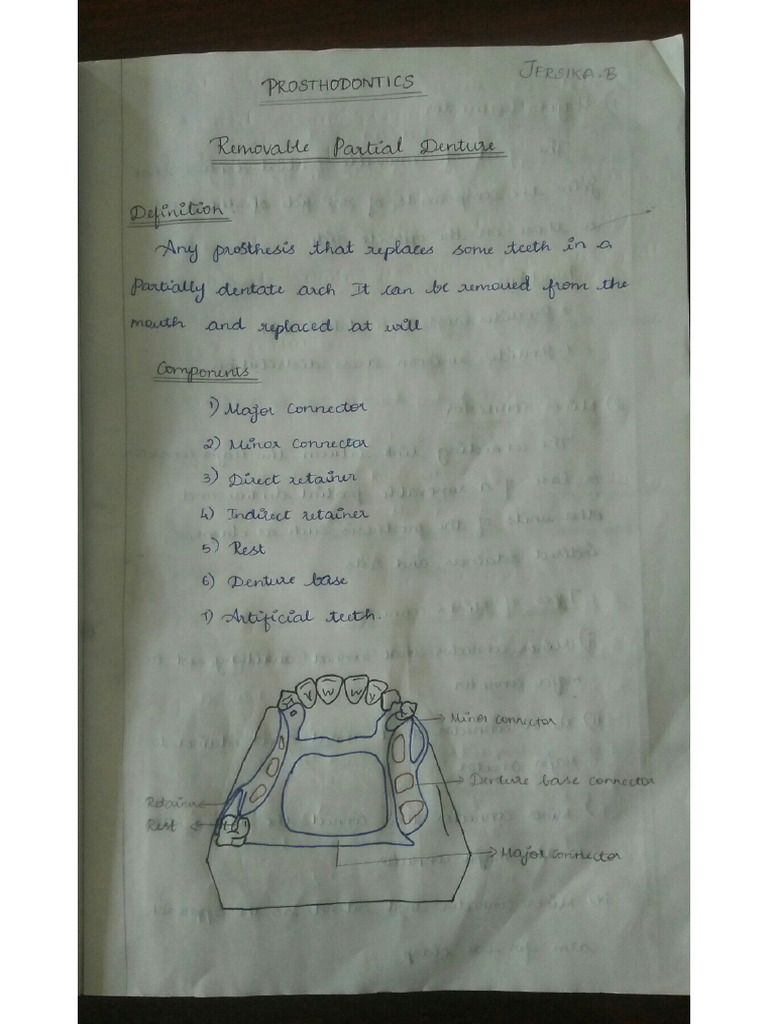 PROSTHODONTICS
JERSIKA.B
Removable Partial Denture
Definition
Any prosthesis that replaces some teeth in a
Partially dentate arch It can be removed from the
mouth and replaced at will
Components
1) Major connector
2) Minor connector
3) Direct retainer
4) Indirect retainer
5) Rest
6) Denture base
7) Artificial teeth.
Minor connector
Denture base connector
Retainer
Rest
Major connector